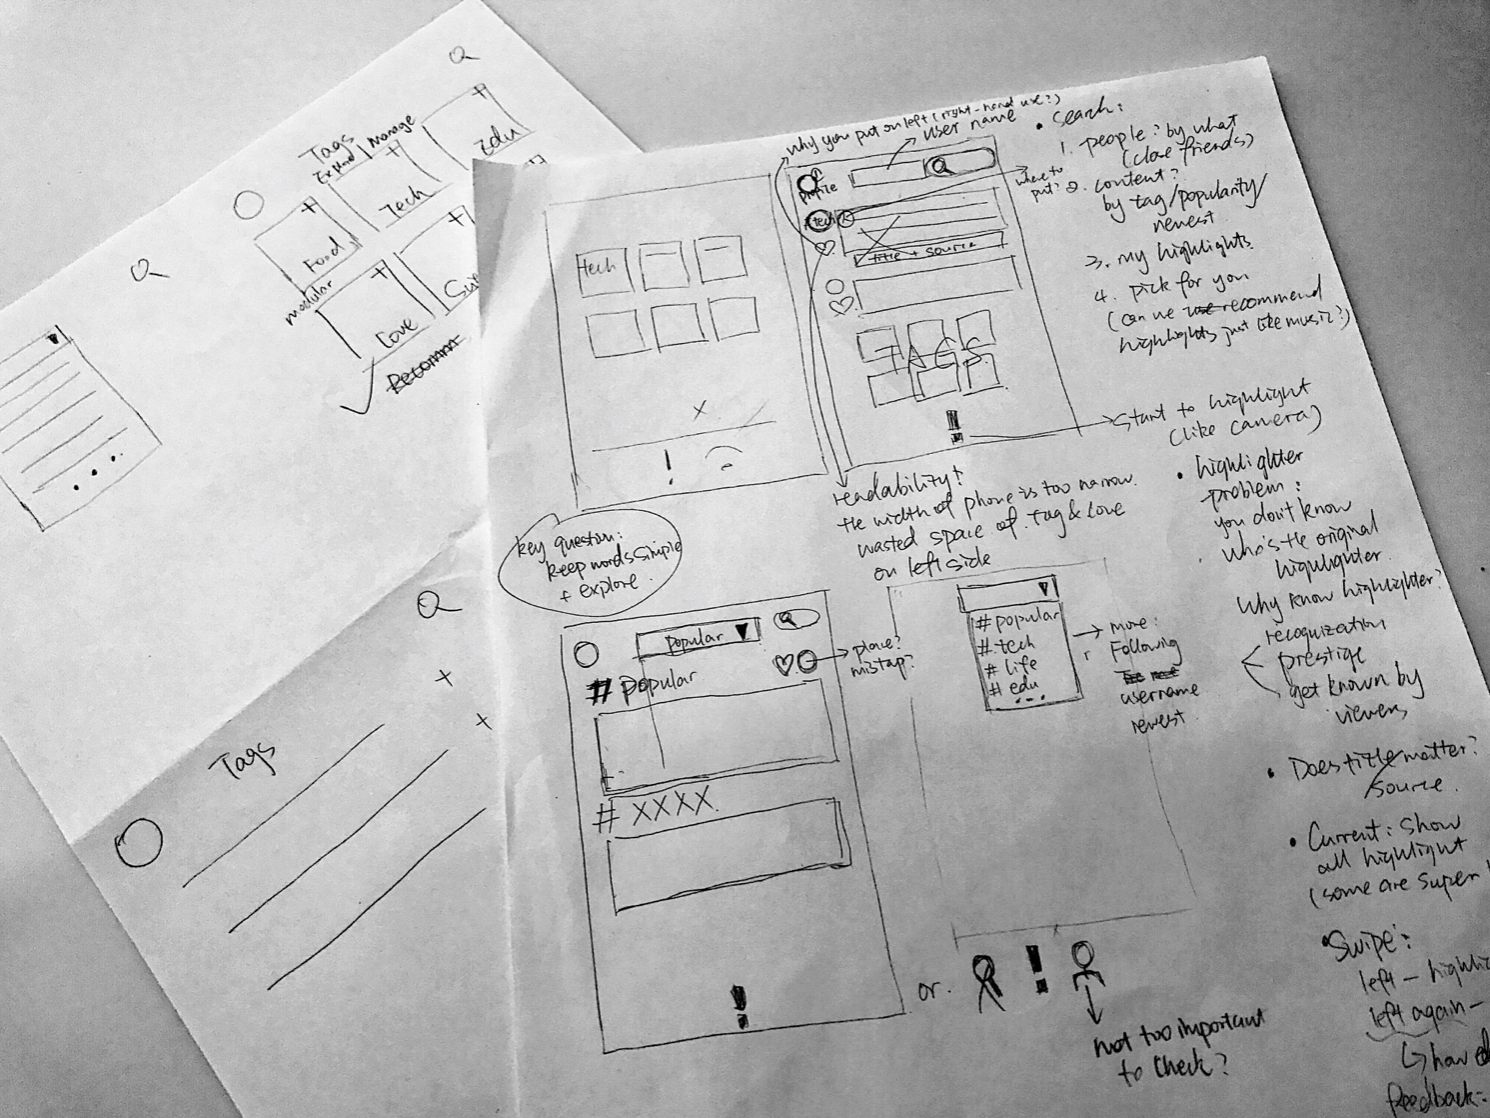 Tags
Explore | Manage
Edu
Tech
Food
modular
Love
Recomm
Tags
tech
key question:
keep words simple
+ explore.
why you put on left (right-hand use?)
user name
profile
tech
title + source
TAGS
where to
put?
start to highlight
(like camera)
readability!
the width of phone is too narrow.
wasted space of tag & love
on left side
popular
# popular
# XXXX
place?
mistap?
# popular
# tech
# life
# edu
...
more:
Following
username
newest
or.
not too important
to check?
• Search:
1. people? by what
(close friends)
2. content?
by tag/popularity/
newest
3. my highlights
4. pick for you
(can we use recommend
highlights just like music?)
• highlighter
problem:
you don't know
who's the original
highlighter.
Why know highlighter?
recoguization
prestige
get known by
viewers
• Does title matter?
/source.
• Current: show
all highlight
(some are super
• Swipe:
left - highli
left again -
feedback: